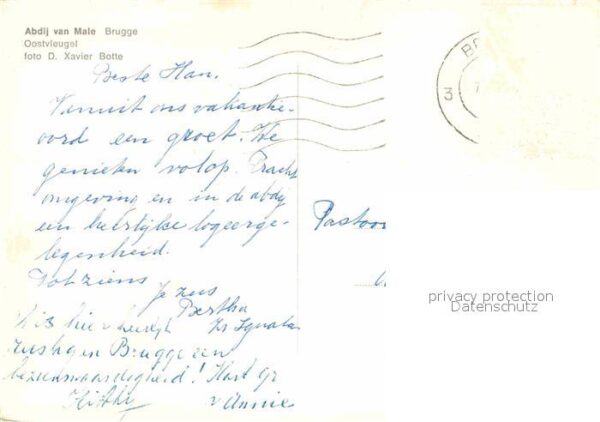 Abdij van Male Brugge
Oostvleugel
foto D. Xavier Botte
Beste Han.
Vanuit ons vakantie-
oord een groet. We
genieten volop. Pracht
omgeving en in de abdij
een heerlijke logeerge-
legenheid.
Tot ziens
Je zus
Bertha
Zr Ignatia
Brugge een
bezienswaardigheid! Hart gr
v Annie
Pastoor
BR
3
privacy protection
Datenschutz